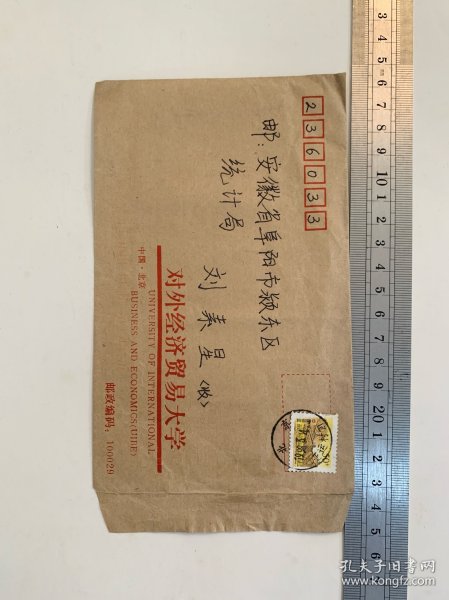 236033
邮:安徽省阜阳市颍东区
统计局
刘素星(收)
对外经济贸易大学
UNIVERSITY OF INTERNATIONAL
BUSINESS AND ECONOMICS(UIBE)
中国·北京
邮政编码:100029
3 4 5 6 7 8 9 10 1 2 3 4 5 6 7 8 9 20 1 2 3 4 5 6
孔夫子旧书网
www.kongfz.com